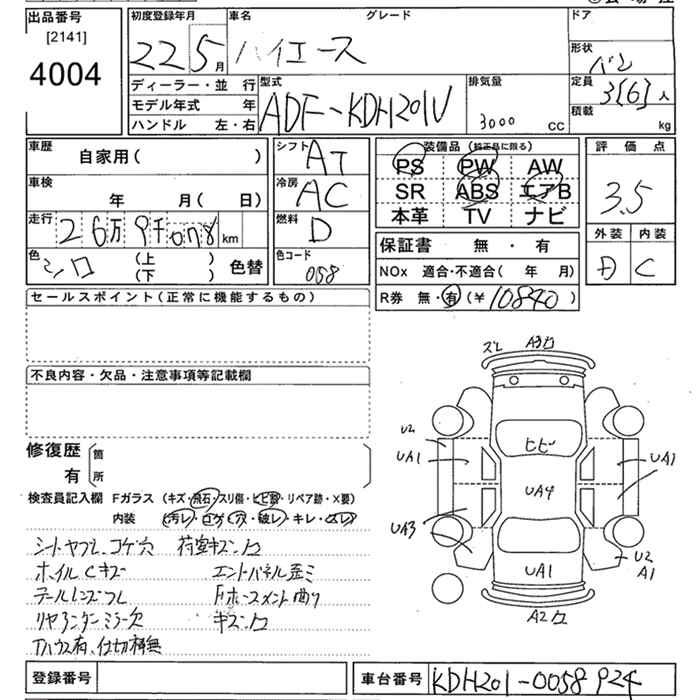 出品番号
[2141]
4004
初度登録年月
22 5月
車名
グレード
ハイエース
ドア
形状
バン
ディーラー・並 行
モデル年式 年
ハンドル 左・右
型式
ADF-KDH201V
排気量
3000 CC
定員
3[6]人
積載
kg
車歴
自家用( )
シフト
AT
装備品(純正品に限る)
PS PW AW
SR ABS エアB
本革 TV ナビ
評価点
3.5
車検
年 月( 日)
冷房
AC
走行
26万9千078km
燃料
D
外装 内装
D C
色
シロ
(上 )
(下 )
色替
色コード
058
保証書 無・有
NOx 適合・不適合( 年 月)
R券 無・有(¥10840)
セールスポイント(正常に機能するもの)
不良内容・欠品・注意事項等記載欄
修復歴
有
箇
所
検査員記入欄 Fガラス (キズ・飛石・スリ傷・ヒビ割・リペア跡・×要)
内装 (汚レ・コゲ・穴・破レ・キレ・ムレ)
シートヤブレ、コゲ穴 荷室キズ凹
ホイルCキズ
テールレンズワレ
リヤアンダーミラー欠
仕切棒無
キズ凹
ズレ A3凹
U2
UA1
ヒビ
UA1
UA4
UA3
UA1
U2
A1
A2凹
登録番号
車台番号 KDH201-0058924